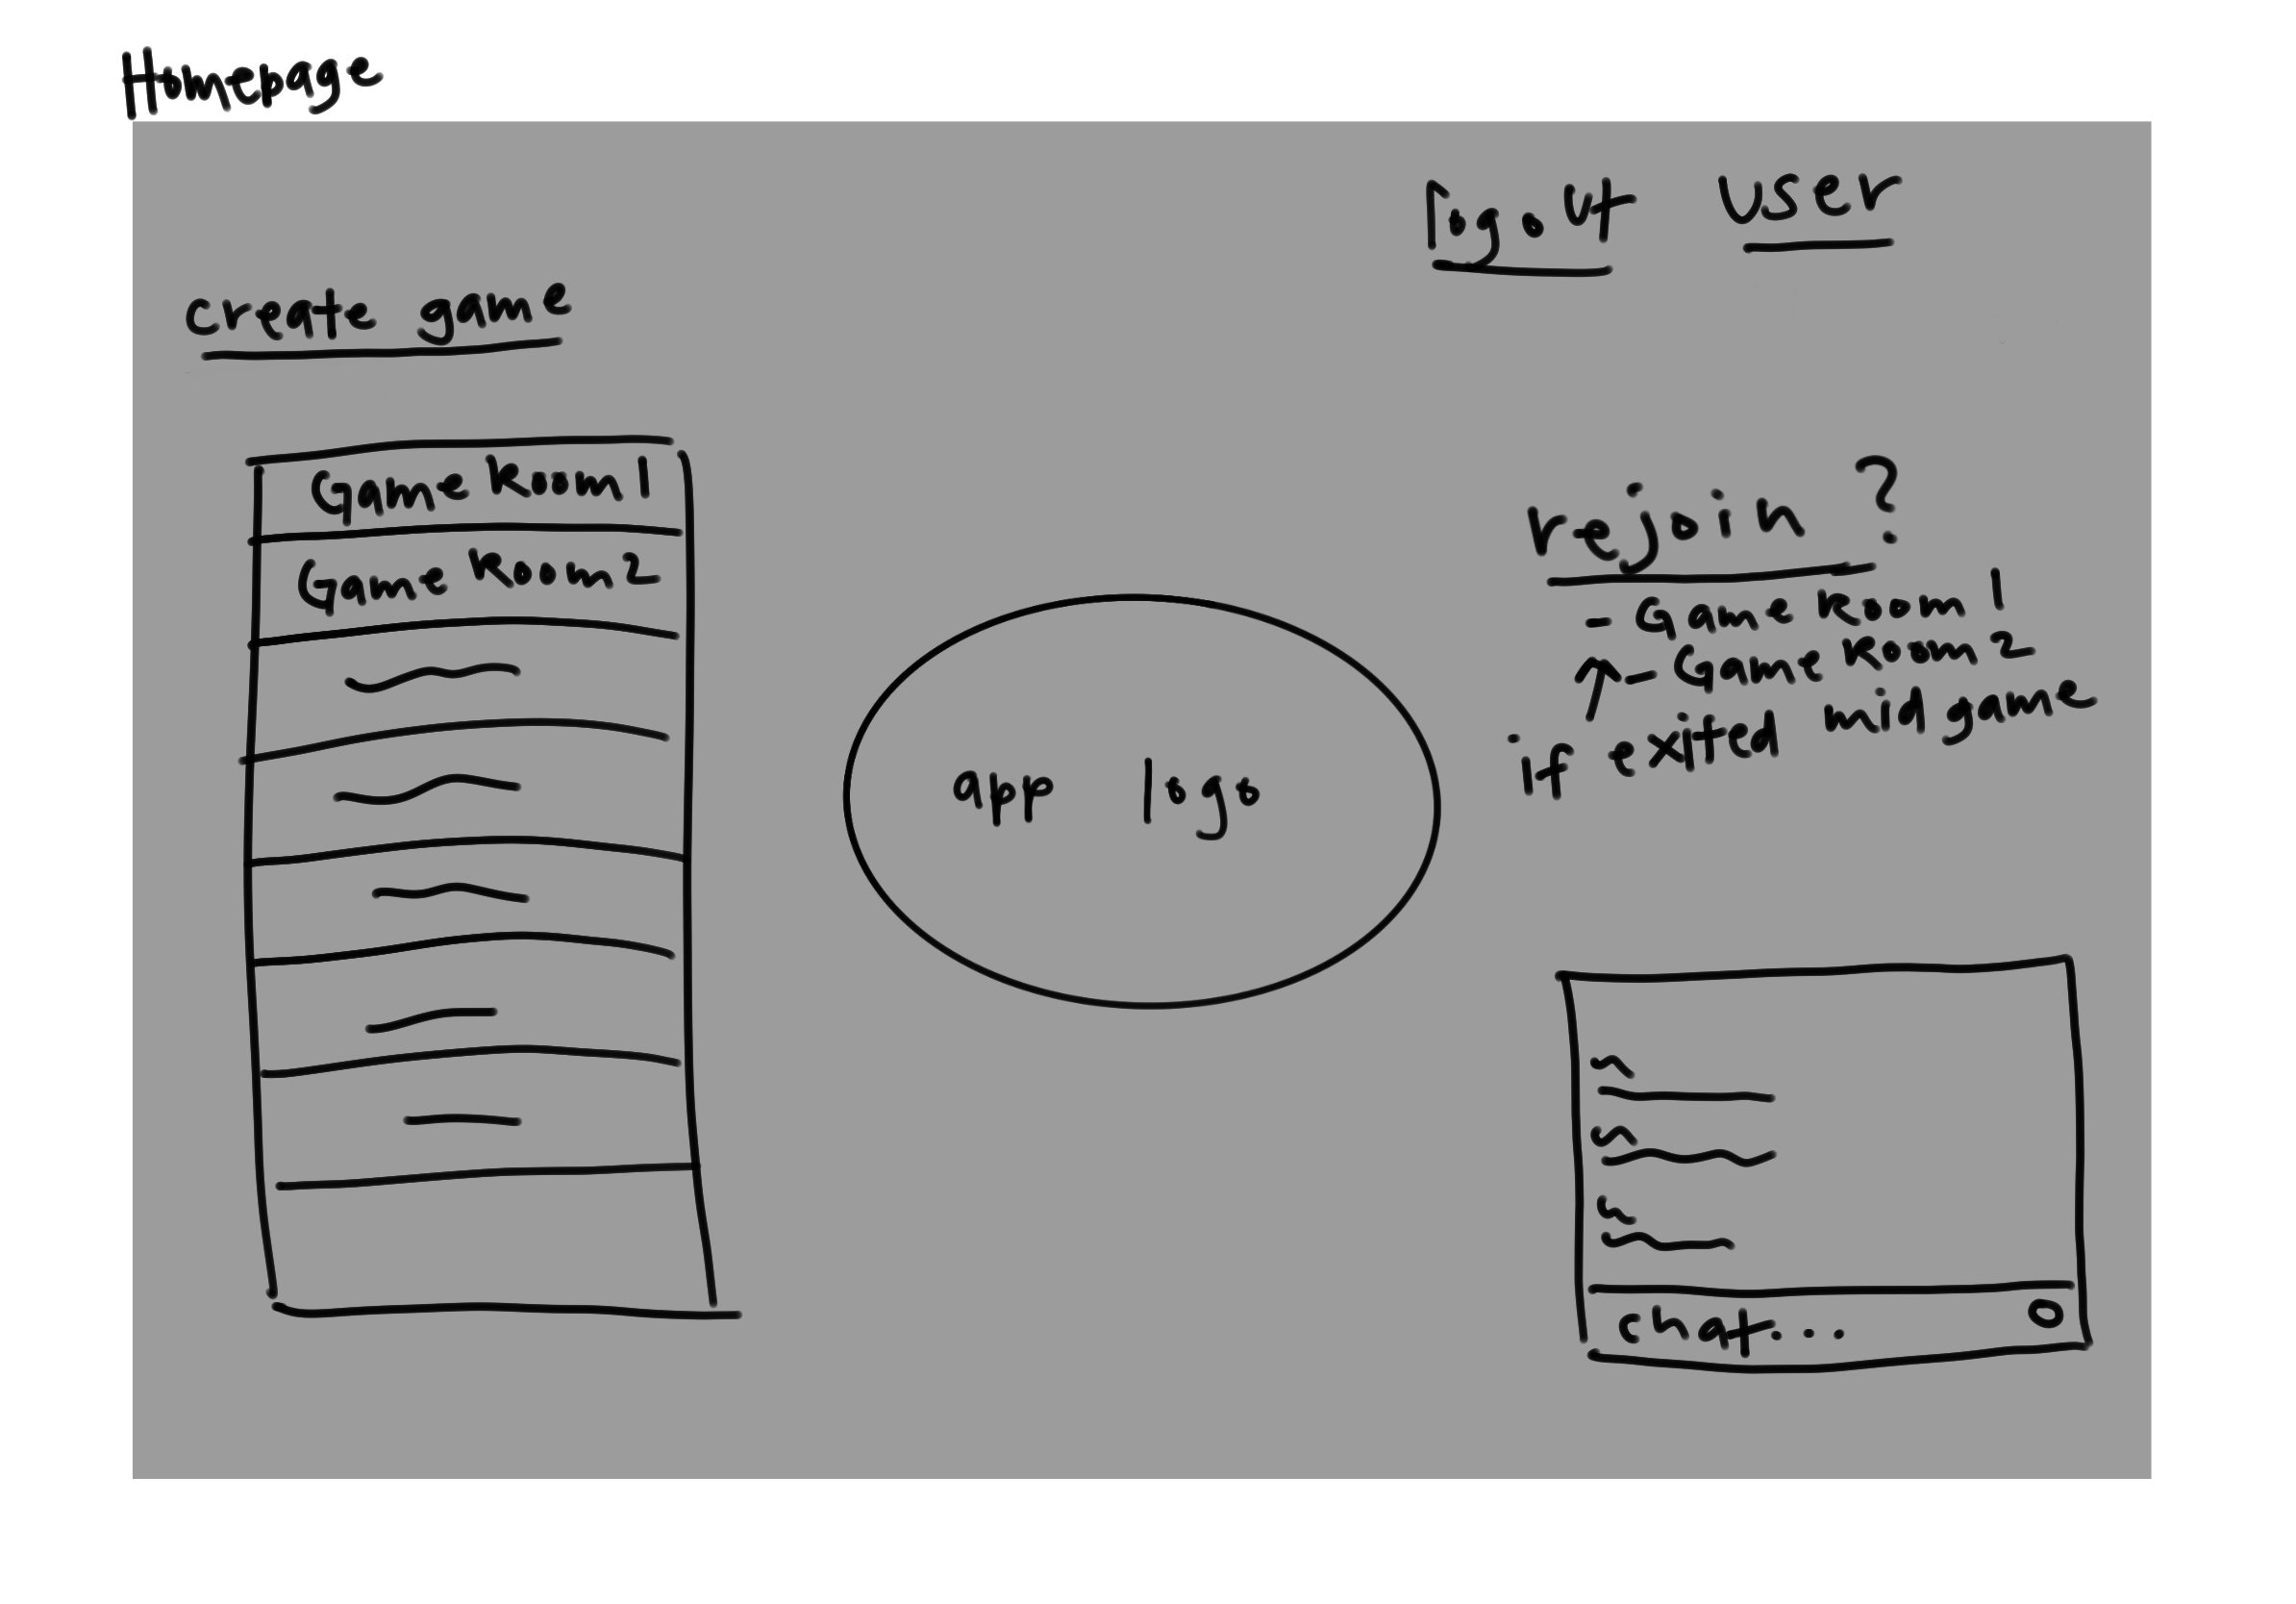 Homepage
logout user
create game
Game Room 1
Game Room 2
app logo
rejoin ?
- Game Room 1
- Game Room 2
if exited mid game
chat...